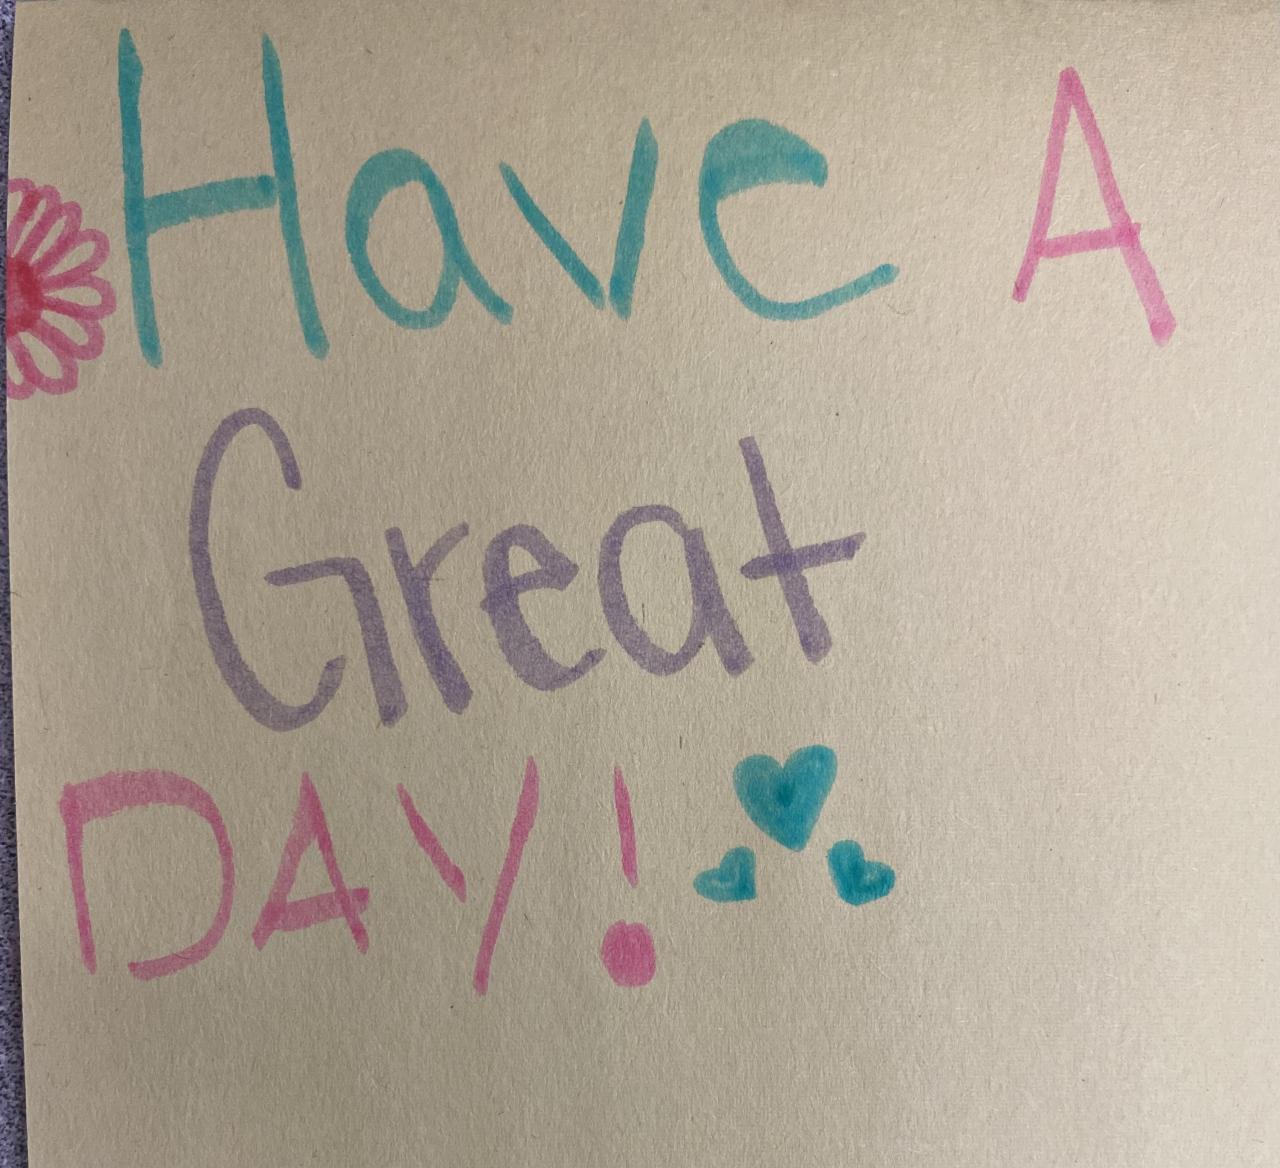 Have A
Great
DAY!